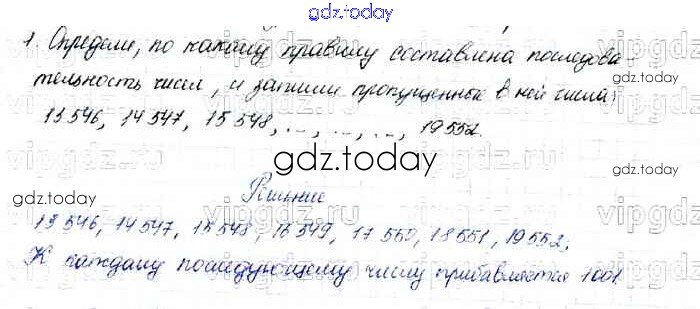 gdz.today
1. Определи, по какому правилу составлена последова-
тельность чисел, и запиши пропущенные в ней числа:
gdz.today
13 546, 14 547, 15 548, ..., ..., ..., 19 552.
gdz.today
gdz.today
Решение
13 546, 14 547, 15 548, 16 549, 17 550, 18 551, 19 552,
К каждому последующему числу прибавляется 1001.
gdz.today